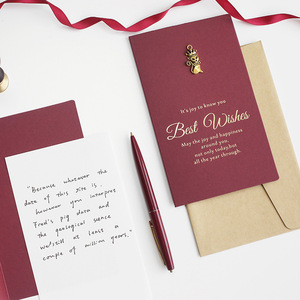 It's joy to know you
Best Wishes
May the joy and happiness
around you
not only today,but
all the year through.
"Because whatever the
data of this site is,
however you interpret
Fred's pig data and
the geological science
we/still at least a
couple of million years."